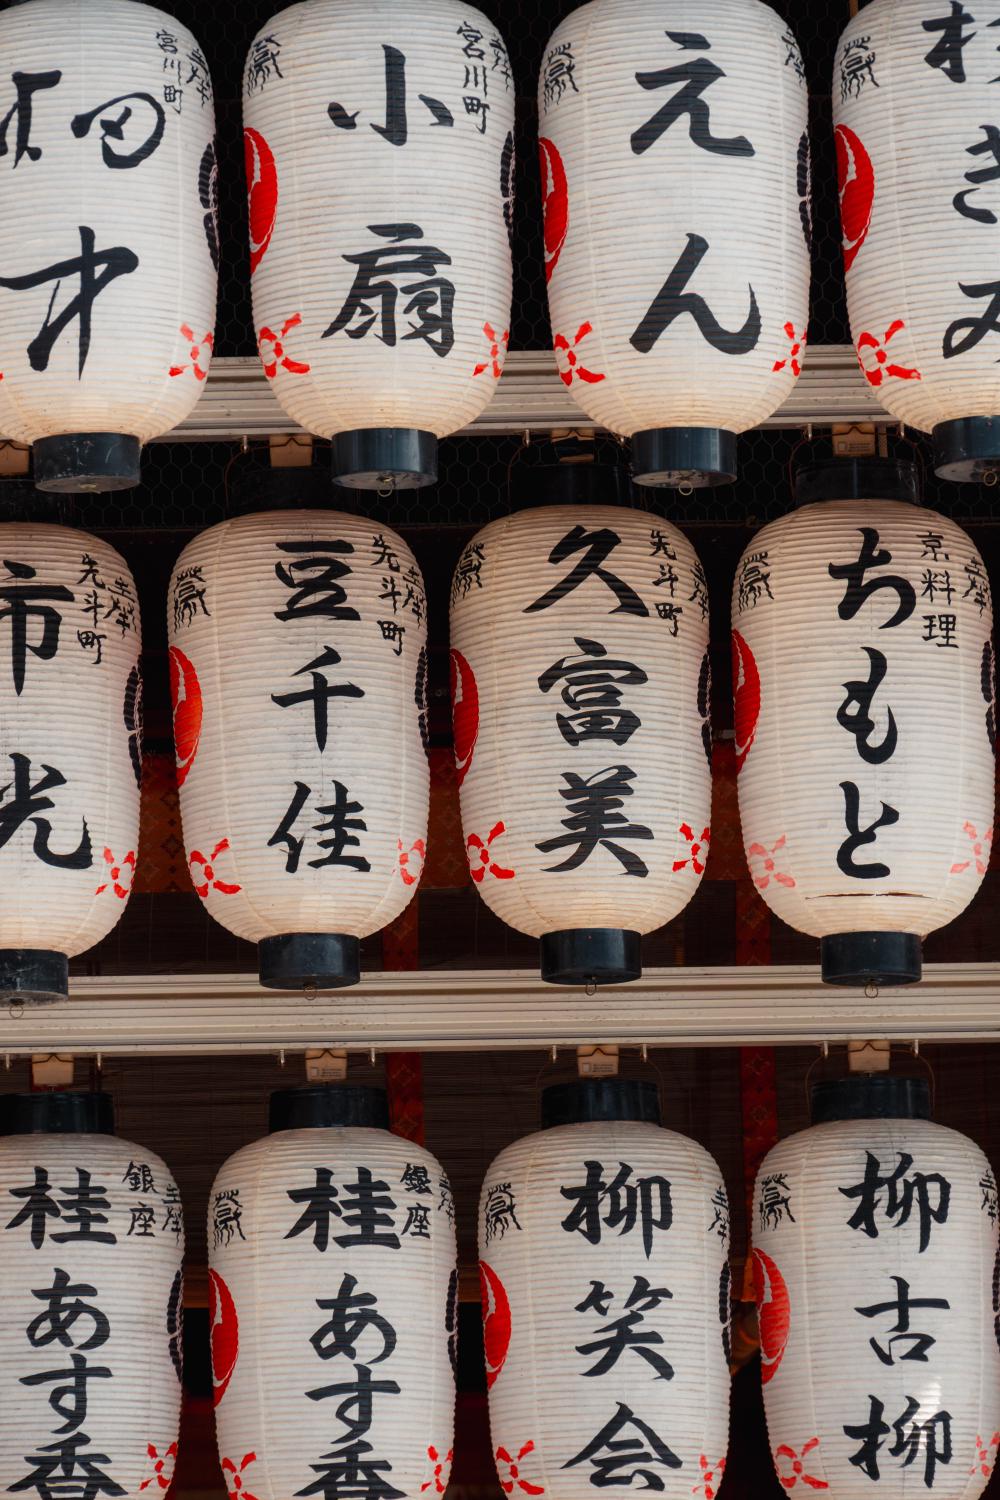 宮川町
宮川町
小扇
えん
先斗町
市光
先斗町
豆千佳
先斗町
久富美
京料理
ちもと
銀座
桂あす香
銀座
桂あす香
柳笑会
柳古柳